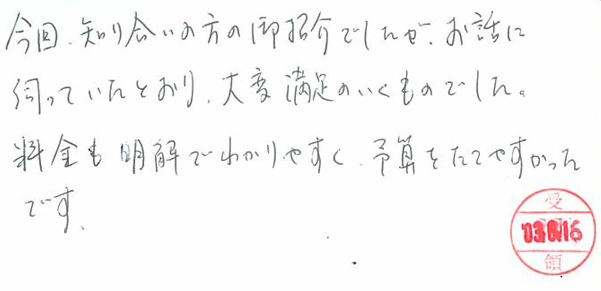 今回、知り合いの方の御紹介でしたが、お話に
伺っていたとおり、大変満足のいくものでした。
料金も明解でわかりやすく、予算をたてやすかった
です。
受
領